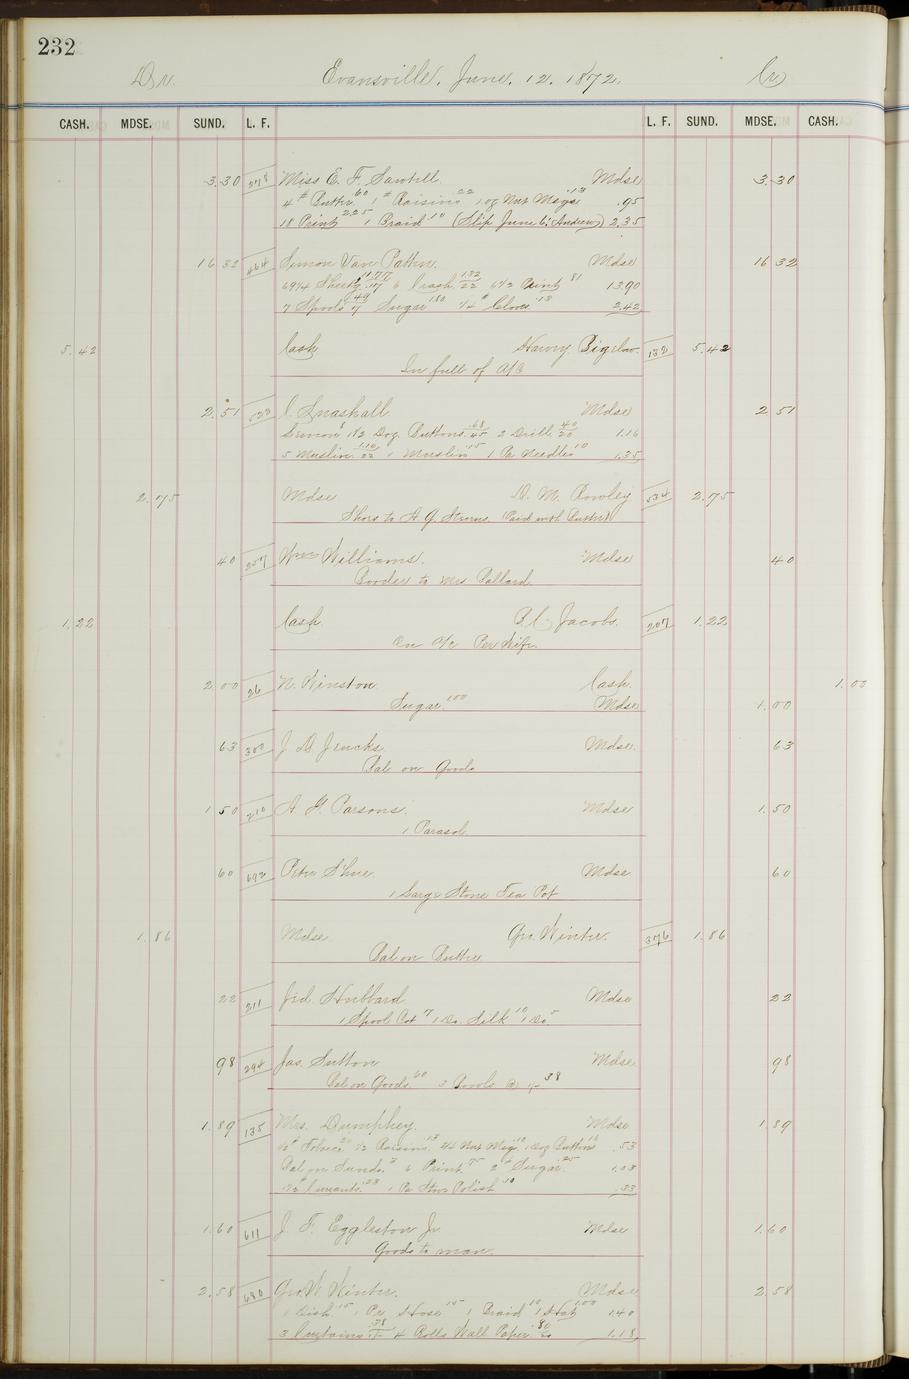 232
Dr. Evansville, June, 12, 1872. Cr
CASH. MDSE. SUND. L. F. L. F. SUND. MDSE. CASH.
3.30 278 Miss E. F. Sawtell. Mdse 3.30
4 # Butter 60 1 # Raisins 22 1 oz Nut Megs 13 .95
18 Print 2.25 1 Braid 10 (Slip June 6, Andrew) 2.35
16 32 464 Simon Van Patten. Mdse 16 32
69 1/4 Sheetg 11.77 .17 6 Crash 1.32 22 6 1/2 Print 81 13.90
7 Spools .49 7 Sugar 1.80 1/4 # Cloves .13 2.42
5.42 Cash Harvey Bigelow 132 5.42
In full of A/c
2.51 Snashall Mdse 2 51
1 1/2 Doz. Buttons .68 45 2 Drill 40 20 1.16
5 Muslin 1.10 22 1 Muslin .15 1 Pa Needles 10 1.35
2.75 Mdse D. M. Rowley 534 2.75
Shoes to A G. Stearns. (Paid with Butter)
40 257 Wm Williams. Mdse 40
Powder to Mrs Pallard
1.22 Cash B. C. Jacobs. 207 1.22
On A/c Per Wife
2 00 26 N. Winston Cash. 1.00
Sugar 1.00 Mdse 1.00
63 300 J D Jencks Mdse. 63
Bal on Goods
1 50 210 A. G. Parsons. Mdse 1.50
1 Parasol
60 692 Peter Shue. Mdse 60
1 Large Stone Tea Pot
1.86 Mdse Geo. Winter. 376 1.86
Bal on Butter
22 211 Jid Hubbard Mdse 22
1 Spool Cot 7 1 Do. Silk 10 1 Do. 5
98 294 Jas. Sutton Mdse 98
Bal on Goods. 60 3 Bowls @ 1/- 38
1.89 135 Mrs. Dumphey. Mdse 1.89
1/2 # Tobacc 20 1/2 Raisins .13 Nut Megs 10 1 Doz Buttons 10 .53
Bal on Sunds. 3 6 Print 75 2 # Sugar .25 1.03
Currants. .23 1 Pa Stove Polish 10 .33
1.60 611 J. F. Eggleston Jr Mdse 1.60
Goods to man.
2.58 680 Geo W Winter. Mdse 2.58
1 Dish .15 1 Pr. Hose .15 1 Braid 10 1 Hat 1.00 1.40
3 Curtains .38 4 Rolls Wall Paper .80 20 1.18